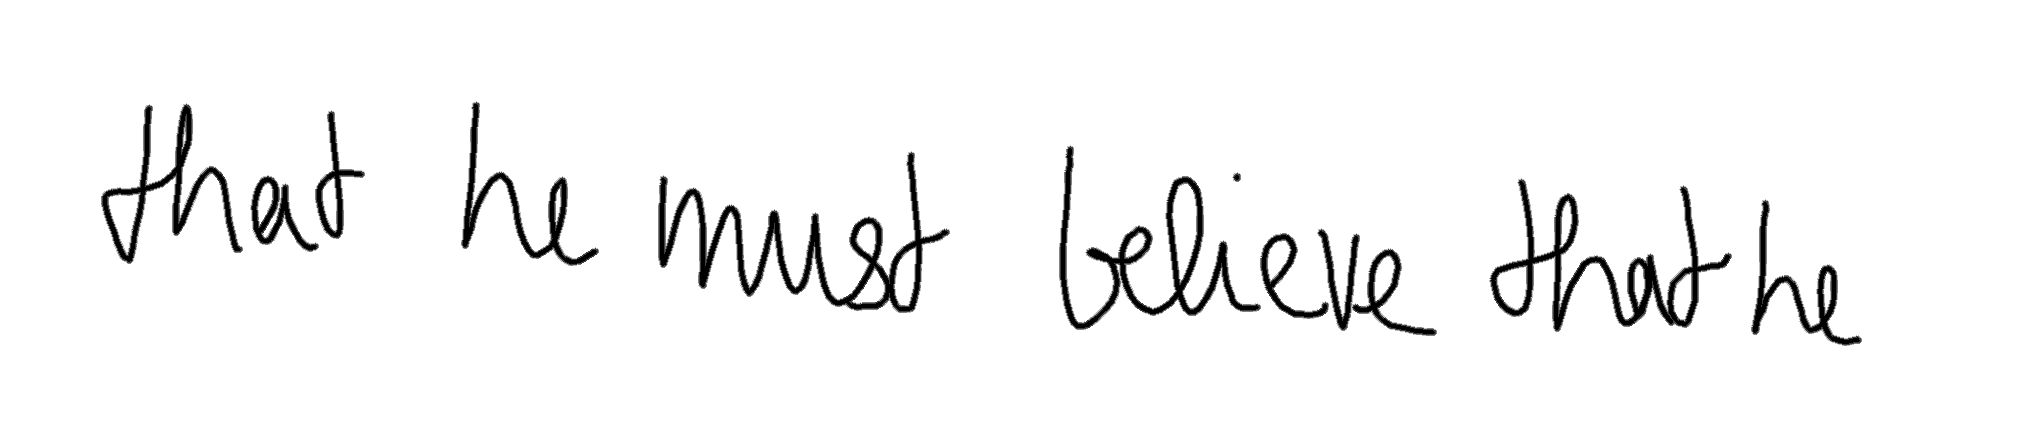 that he must believe that he